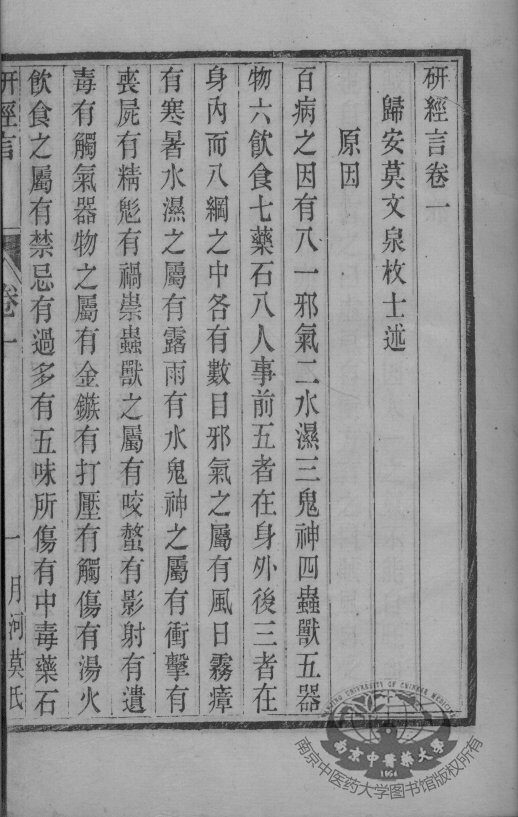 研經言卷一
歸安莫文泉枚士述
原因
百病之因有八一邪氣二水濕三鬼神四蟲獸五器
物六飲食七藥石八人事前五者在身外後三者在
身內而八綱之中各有數目邪氣之屬有風日霧瘴
有寒暑水濕之屬有露雨有水鬼神之屬有衝擊有
喪屍有精魅有禍祟蟲獸之屬有咬螫有影射有遺
毒有觸氣器物之屬有金鏃有打壓有觸傷有湯火
飲食之屬有禁忌有過多有五味所傷有中毒藥石
研經言 卷一 一 月河莫氏
NANJING UNIVERSITY OF CHINESE MEDICINE
南京中醫藥大學
1954
南京中医药大学图书馆版权所有